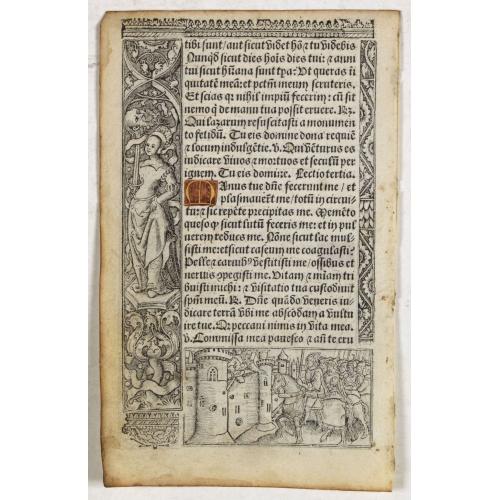 tibi sunt / aut sicut videt hō & tu videbis
Nunqd sicut dies hois dies tui: & anni
tui sicut hūana sunt tpa: Ut queras ini
quitatē meā: et petm̄ meum scruteris.
Et scias qꝛ nihil impiū fecerim: cū sit
nemo q̇ de manu tua possit eruere. R̃.
Qui lazarum resuscitasti a monumen
to fetidū. Tu eis domine dona requiē
& locum indulgētie. v. Qui vēturus es
iudicare vivos & mortuos et seculū per
ignem. Tu eis domine. Lectio tertia.
Manus tue dn̄e fecerunt me / et
plasmauerūt me / totū in circui
tu: & sic repēte precipitas me. Memēto
queso qꝫ sicut lutū feceris me: et in pul
uerem reduces me. Nōne sicut lac mul
sisti me: et sicut caseum me coagulasti?
Pelle & carnibꝰ vestisti me / ossibus et
neruis cōpegisti me. Vitam & mīam tri
buisti michi: & visitatio tua custodiuit
spm̄ meū. R̃. Dn̄e quādo veneris iu-
dicare terrā vbi me abscōdam a vultu
ire tue. Q̃ peccaui nimis in vita mea.
v. Commissa mea pauesco & an̄ te eru